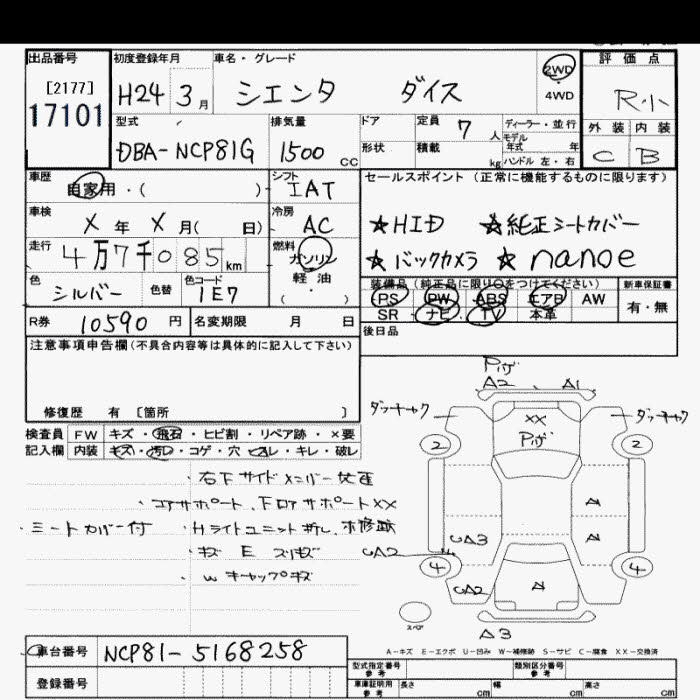 出品番号
[2177]
17101
初度登録年月
H24 3月
車名・グレード
シエンタ ダイス
2WD
4WD
評価点
R小
外装 内装
C B
型式
DBA-NCP81G
排気量
1500 CC
ドア
形状
定員 7 人
積載 kg
ディーラー・並行
モデル
年式 年
ハンドル 左・右
車歴
自家用・( )
シフト
IAT
セールスポイント (正常に機能するものに限ります)
☆HID ☆純正シートカバー
☆バックカメラ ☆nanoe
車検
X 年 X 月( 日)
冷房
AC
走行
4万7千085km
燃料
ガソリン
軽油
( ・ )
色
シルバー
色替
色コード
1E7
装備品 (純正品に限り○をつけてください)
新車保証書
PS PW ABS エアB AW
SR ナビ TV 本革
有・無
R券 10590 円
名変期限 月 日
後日品
注意事項申告欄(不具合内容等は具体的に記入して下さい)
修復歴 有 [箇所 ]
検査員
記入欄
FW キズ・飛石・ヒビ割・リペア跡・×要
内装 キズ・汚れ・コゲ・穴・スレ・キレ・破レ
・右下サイドメンバー
・コアサポート、下ロアサポートXX
・シートカバー付
・Hライトユニット
・キズ E スリキズ
・W キャップキズ
A2 A1
XX
2 2
A
A
A3
A2
4 4
A2
A
A3
スペア
A-キズ E-エクボ U-凹み W-補修跡 S-サビ C-腐食 XX-交換済
車台番号 NCP81-5168258
登録番号
型式指定番号
参考
類別区分番号
参考
車庫証明用
参考
長さ cm
幅 cm
高さ cm